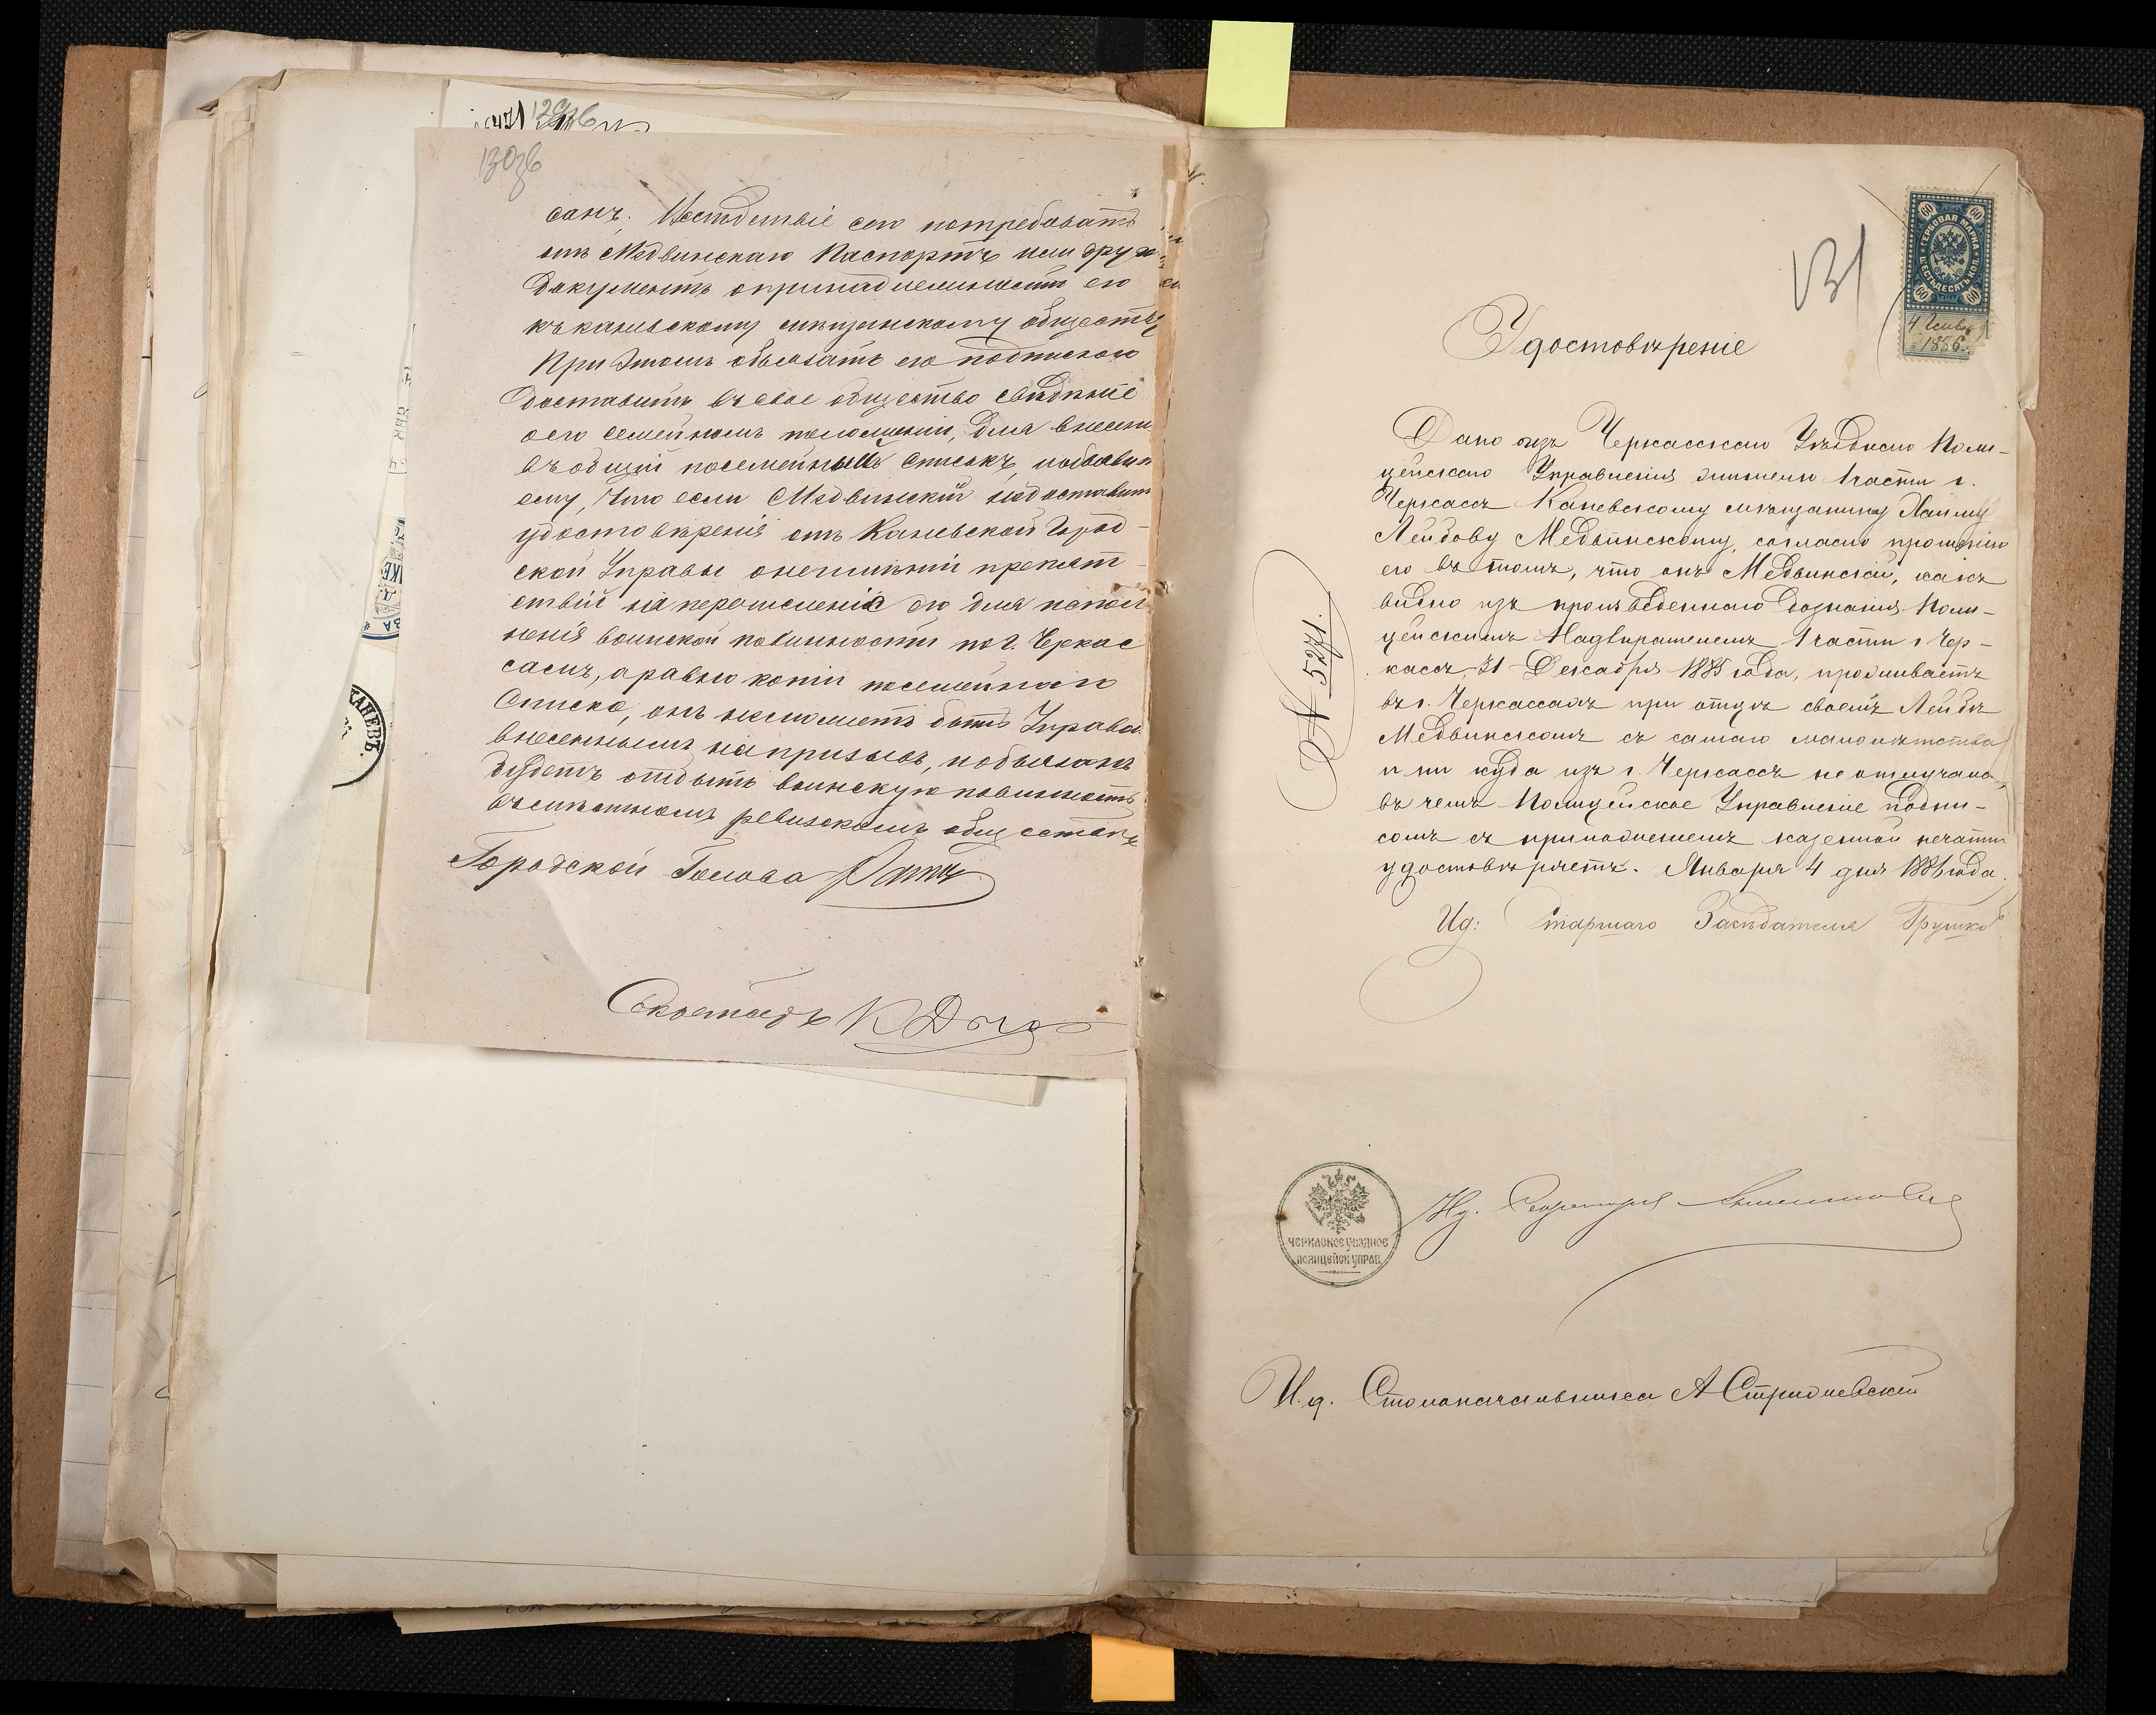 130зв
санъ. Вслѣдствіе сего потребовать
отъ Медвинскаго Паспортъ или друг
документъ опринадлежности его
къ каневскому мѣщанскому обществу
При этомъ обязать его подпискою
доставить въ свое общество свѣдѣніе
о его семейномъ положеніи, для внесенія
въ общій посемейный списокъ, и объявить
ему, что если Медвинскій недоставитъ
удостовѣренія отъ Каневской Город-
ской Управы о неимѣніи препят-
ствій на перечисленіе его для испол
ненія воинской повинности по г. Черкас
самъ, а равно копіи посемейнаго
Списка, онъ не можетъ быть Управою
внесеннымъ на призывъ, и обязанъ
будетъ отбыть воинскую повинность
въ ревизскомъ обществѣ
Городской Голова
Секретарь
КАНЕВЪ.
131
ГЕРБОВАЯ МАРКА
ШЕСТЬДЕСЯТЪ КОП.
60 60 60 60
4 Генваря
1886г.
Удостовѣреніе
№ 5271.
Дано изъ Черкасскаго Уѣзднаго Поли-
цейскаго Управленія жителю 1 части г.
Черкассъ Каневскому мѣщанину Хаиму
Лейбову Медвинскому, согласно прошенію
его въ томъ, что онъ Медвинскій, какъ
видно изъ произведеннаго дознанія Поли-
цейскимъ Надзирателемъ 1 части г. Чер-
кассъ, 31 Декабря 1885 года, проживаетъ
въ г. Черкассахъ при отцѣ своемъ Лейбѣ
Медвинскомъ съ самаго малолѣтства
и ни куда изъ г. Черкассъ не отлучался,
въ чемъ Полицейское Управленіе подпи-
сомъ съ приложеніемъ казенной печати
удостовѣряетъ. Января 4 дня 1886 года.
Ид: Старшаго Засѣдателя Грушко
ЧЕРКАСКОЕ УѢЗДНОЕ
ПОЛИЦЕЙСК УПРАВ.
Ид. Секретаря
И.д. Столоначальника А Стрижевскій